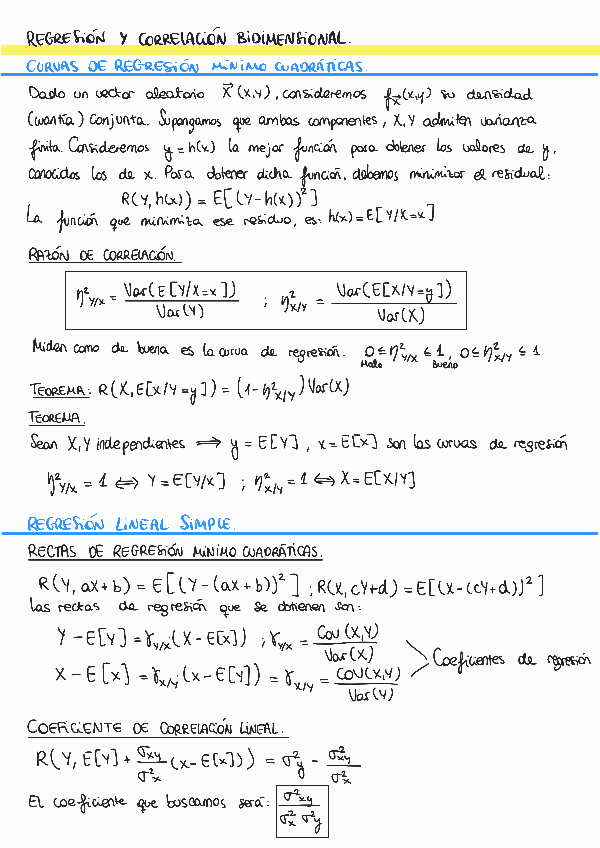 REGRESIÓN Y CORRELACIÓN BIDIMENSIONAL.
CURVAS DE REGRESIÓN MÍNIMO CUADRÁTICAS.
Dado un vector aleatorio X⃗(x,y), consideremos f_X⃗(x,y) su densidad
(cuantía) conjunta. Supongamos que ambas componentes, X,Y admiten varianza
finita. Consideremos y=h(x) la mejor función para obtener los valores de y,
conocidos los de x. Para obtener dicha función, debemos minimizar el residual:
R(Y,h(x)) = E[(Y-h(x))²]
La función que minimiza ese residuo, es: h(x)=E[Y/X=x]
RAZÓN DE CORRELACIÓN.
η²_Y/X = Var(E[Y/X=x]) / Var(Y) ; η²_X/Y = Var(E[X/Y=y]) / Var(X)
Miden como de buena es la curva de regresión. 0≤η²_Y/X≤1, 0≤η²_X/Y≤1
Malo Bueno
TEOREMA: R(X,E[X/Y=y]) = (1-η²_X/Y)Var(X)
TEOREMA.
Sean X,Y independientes ⟹ y = E[Y], x = E[x] son las curvas de regresión
η²_Y/X = 1 ⟺ Y = E[Y/X] ; η²_X/Y = 1 ⟺ X = E[X/Y]
REGRESIÓN LINEAL SIMPLE.
RECTAS DE REGRESIÓN MÍNIMO CUADRÁTICAS.
R(Y, aX+b) = E[(Y-(aX+b))²] ; R(X, cY+d) = E[(X-(cY+d))²]
Las rectas de regresión que se obtienen son:
Y-E[Y] = γ_Y/X (X-E[x]) ; γ_Y/X = Cov(X,Y) / Var(X)
X-E[x] = γ_X/Y (x-E[Y]) = γ_X/Y = COV(X,Y) / Var(Y)
Coeficientes de regresión
COEFICIENTE DE CORRELACIÓN LINEAL.
R(Y, E[Y] + σxy/σ²x (x-E[x])) = σ²y - σ²xy/σ²x
El coeficiente que buscamos será: σ²xy / σ²x σ²y